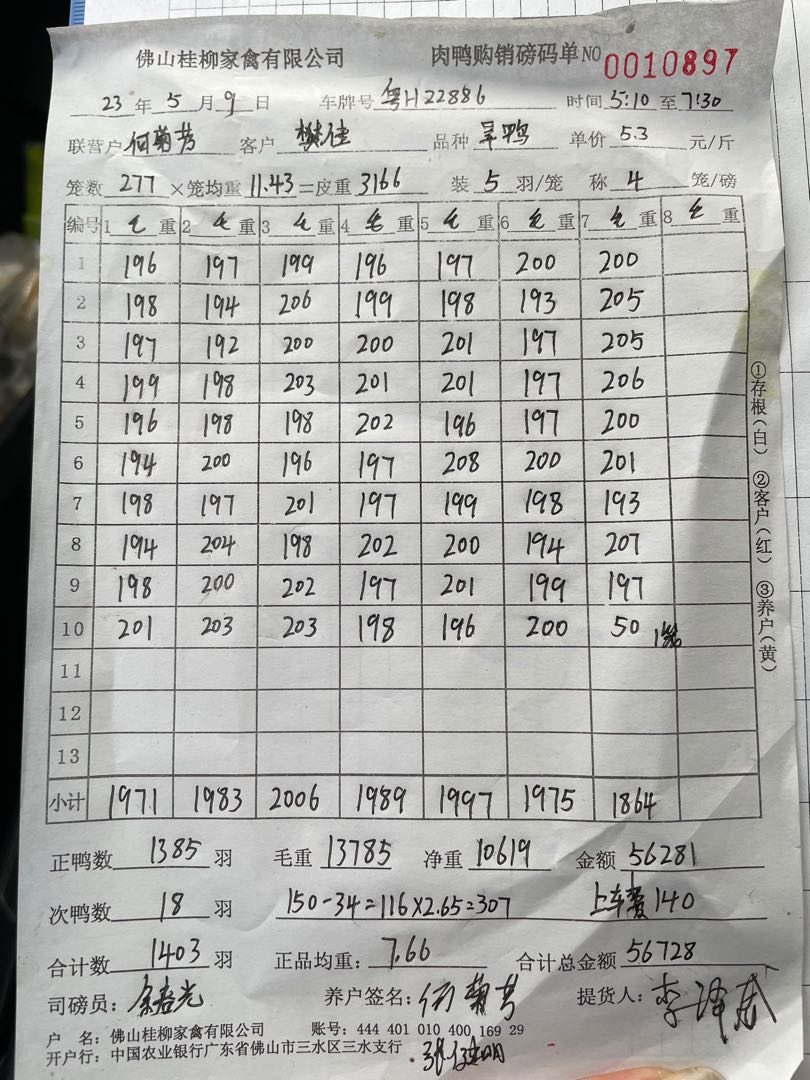 佛山桂柳家禽有限公司 肉鸭购销磅码单 NO 0010897
23 年 5 月 9 日 车牌号 粤H22886 时间 5:10 至 7:30
联营户 何菊芳 客户 樊佳 品种 旱鸭 单价 5.3 元/斤
笼数 277 ×笼均重 11.43 =皮重 3166 装 5 羽/笼 称 4 笼/磅
编号 1 毛 重 2 毛 重 3 毛 重 4 毛 重 5 毛 重 6 毛 重 7 毛 重 8 毛 重
1 196 197 199 196 197 200 200
2 198 194 206 199 198 193 205
3 197 192 200 200 201 197 205
4 199 198 203 201 201 197 206
5 196 198 198 202 196 197 200
6 194 200 196 197 208 200 201
7 198 197 201 197 199 198 193
8 194 204 198 202 200 194 207
9 198 200 202 197 201 199 197
10 201 203 203 198 196 200 50 1笼
11
12
13
小计 1971 1983 2006 1989 1997 1975 1864
正鸭数 1385 羽 毛重 13785 净重 10619 金额 56281
次鸭数 18 羽 150-34=116×2.65=307 上车费 140
合计数 1403 羽 正品均重: 7.66 合计总金额 56728
司磅员: 养户签名: 何菊芳 提货人:
户 名: 佛山桂柳家禽有限公司 账号: 444 401 010 400 169 29
开户行: 中国农业银行广东省佛山市三水区三水支行
①存根(白) ②客户(红) ③养户(黄)